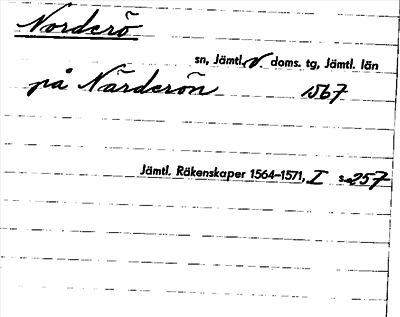 Norderö
sn, Jämtl. V. doms. tg, Jämtl. län
på Närderön 1567
Jämtl. Räkenskaper 1564–1571, I s. 257